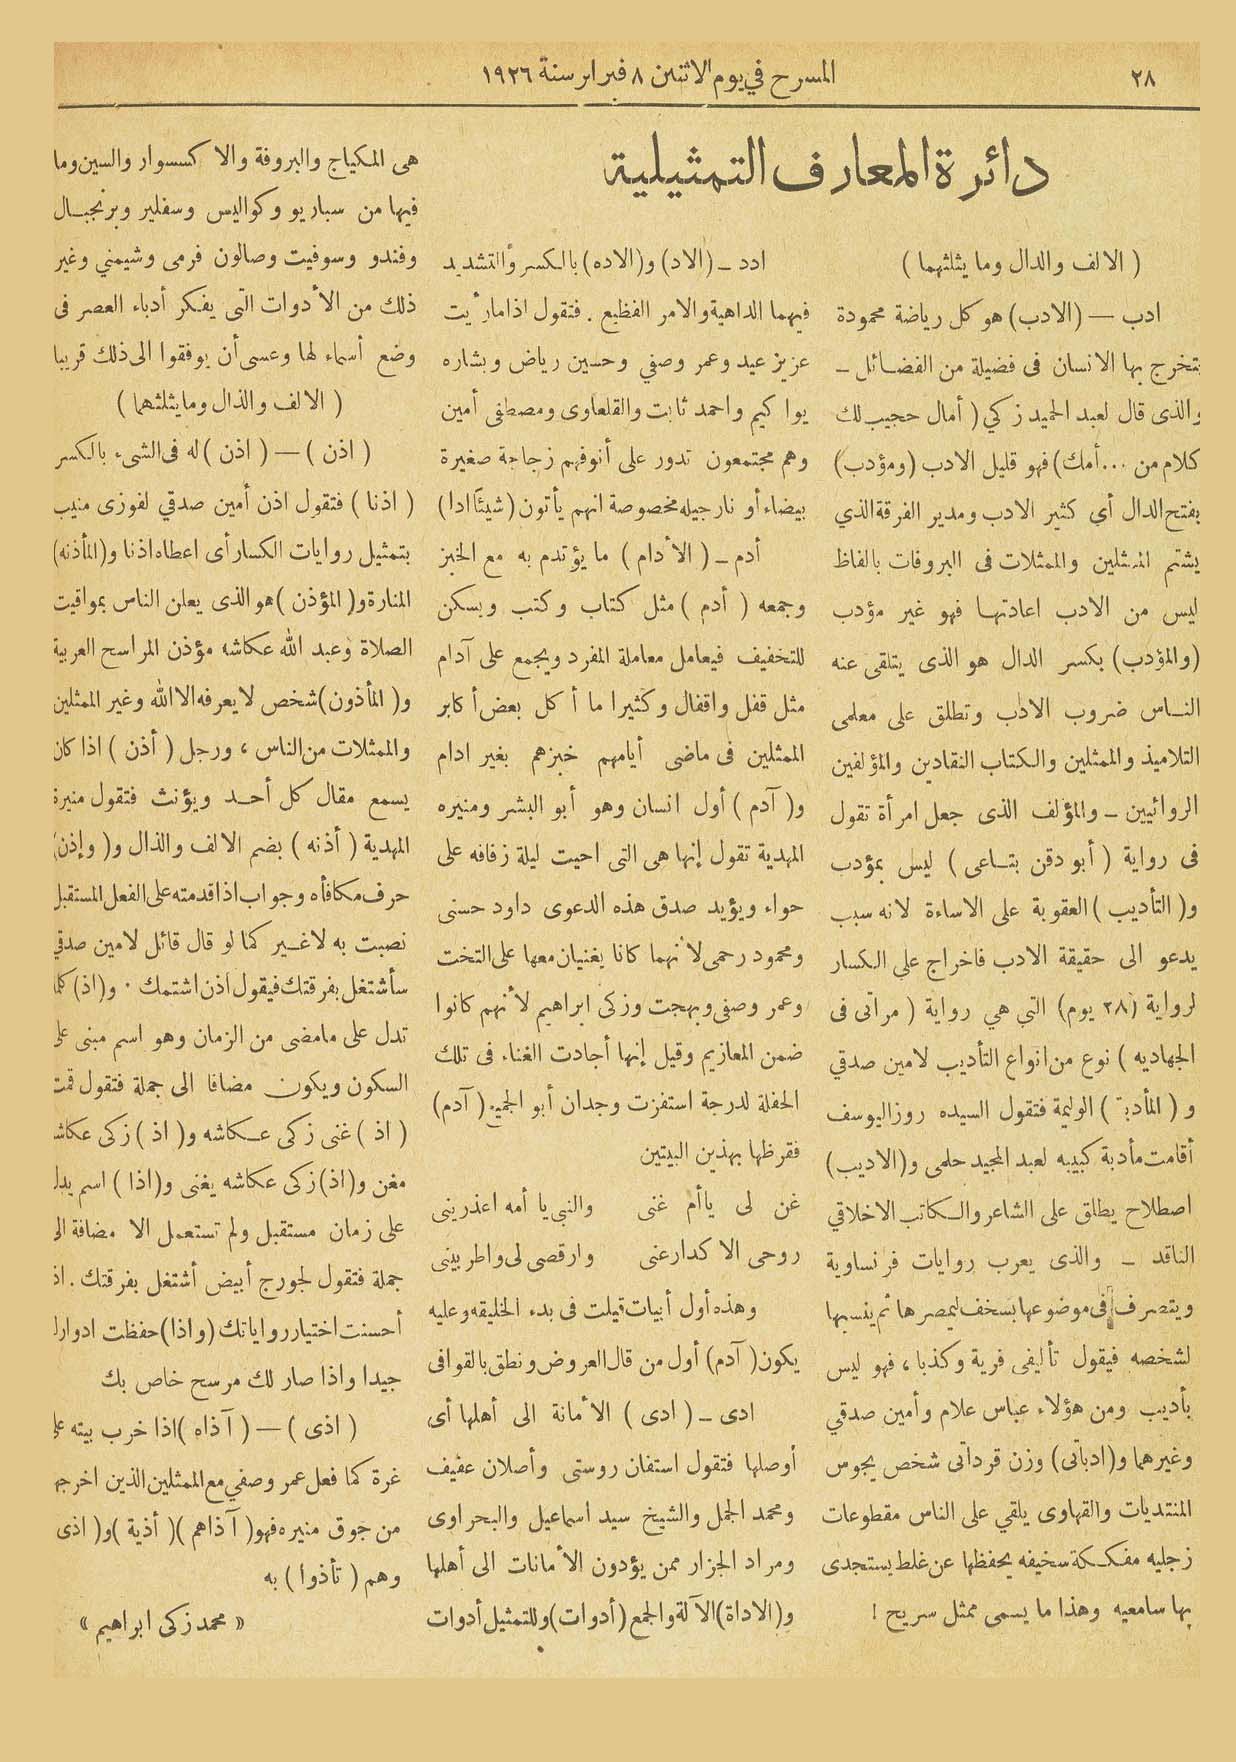 ٢٨
المسرح في يوم الاثنين ٨ فبراير سنة ١٩٢٦
دائرة المعارف التمثيلية
( الالف والدال وما يثلثهما )
ادب — (الادب) هو كل رياضة محمودة
يتخرج بها الانسان فى فضيلة من الفضائل ـ
والذى قال لعبد الحميد زكي ( أمال حجيب لك
كلام من ... أمك) فهو قليل الادب (ومؤدب)
بفتح الدال أي كثير الادب ومدير الفرقة الذي
يشتم الممثلين والممثلات فى البروفات بالفاظ
ليس من الادب اعادتها فهو غير مؤدب
(والمؤدب) بكسر الدال هو الذى يتلقى عنه
الناس ضروب الادب وتطلق على معلمى
التلاميذ والممثلين والكتاب النقادين والمؤلفين
الروائيين ـ والمؤلف الذى جعل امرأة تقول
فى رواية ( أبو دقن بتاعى ) ليس بمؤدب
و( التأديب ) العقوبة على الاساءة لانه سبب
يدعو الى حقيقة الادب فاخراج على الكسار
لرواية (٢٨ يوم) التي هي رواية ( مراتى فى
الجهاديه ) نوع من انواع التأديب لامين صدقي
و ( المأدبة ) الوليمة فتقول السيده روز اليوسف
أقامت مأدبة كبيبه لعبد المجيد حلمى و(الاديب)
اصطلاح يطلق على الشاعر والكاتب الاخلاقي
الناقد ـ والذى يعرب روايات فرنساوية
ويتصرف فى موضوعها بسخف ليمصرها ثم ينسبها
لشخصه فيقول تأليفى فرية وكذبا ، فهو ليس
بأديب ومن هؤلاء عباس علام وأمين صدقي
وغيرهما و(ادباتى) وزن قرداتى شخص يجوس
المنتديات والقهاوى يلقي على الناس مقطوعات
زجليه مفككة سخيفه يحفظها عن غلط يستجدى
بها سامعيه وهذا ما يسمى ممثل سريح !
ادد ـ (الاد) و(الاده) بالكسر والتشديد
فيهما الداهية والامر الفظيع . فتقول اذا مارأيت
عزيز عيد وعمر وصفي وحسين رياض وبشاره
يوا كيم واحمد ثابت والقلعاوى ومصطفى أمين
وهم مجتمعون تدور على أنوفهم زجاجة صغيرة
بيضاء أو نارجيله مخصوصة انهم يأتون (شيئا ادا)
أدم ـ ( الأدام ) ما يؤتدم به مع الخبز
وجمعه ( أدم ) مثل كتاب وكتب وبسكن
للتخفيف فيعامل معاملة المفرد ويجمع على آدام
مثل قفل واقفال وكثيرا ما أكل بعض أكابر
الممثلين فى ماضى أيامهم خبزهم بغير ادام
و( آدم ) أول انسان وهو أبو البشر ومنيره
المهدية تقول إنها هى التى احيت ليلة زفافه على
حواء ويؤيد صدق هذه الدعوى داود حسنى
ومحمود رحمى لأنهما كانا يغنيان معها على التخت
وعمر وصفى وبهجت وزكى ابراهيم لأنهم كانوا
ضمن المعازيم وقيل إنها أجادت الغناء فى تلك
الحفلة لدرجة استفزت وجدان أبو الجميع ( آدم)
فقرظها بهذين البيتين
غن لى ياأم غنى والنبى يا أمه اعذرينى
روحى الا كدار عنى وارقصى لى واطربينى
وهذه أول أبيات قيلت فى بدء الخليقه وعليه
يكون ( آدم) أول من قال العروض ونطق بالقوافى
ادى ـ ( ادى ) الأمانة الى أهلها أى
أوصلها فتقول استفان روستى وأصلان عفيف
ومحمد الجمل والشيخ سيد اسماعيل والبحراوى
ومراد الجزار ممن يؤدون الأمانات الى أهلها
و( الاداة) الآلة والجمع ( أدوات ) وللتمثيل أدوات
هى المكياج والبروفة والا كسسوار والسين وما
فيها من سباريو وكواليس وسفلير وبرنجبال
وفندو وسوفيت وصالون فرمى وشيمني وغير
ذلك من الأدوات التى يفكر أدباء العصر فى
وضع أسماء لها وعسى أن يوفقوا الى ذلك قريبا
( الالف والذال وما يثلثهما )
( اذن ) — ( اذن ) له فى الشىء بالكسر
( اذنا ) فتقول اذن أمين صدقي لفوزى منيب
بتمثيل روايات الكسار أى اعطاه اذنا و( المأذنه)
المنارة و( المؤذن ) هو الذى يعلن الناس بمواقيت
الصلاة وعبد الله عكاشه مؤذن المراسح العربية
و( المأذون) شخص لا يعرفه الا الله وغير الممثلين
والممثلات من الناس ، ورجل ( أذن ) اذا كان
يسمع مقال كل أحد ويؤنث فتقول منيرة
المهدية ( أذنه ) بضم الالف والذال و( وإذن)
حرف مكافأه وجواب اذا قدمته على الفعل المستقبل
نصبت به لاغير كما لو قال قائل لامين صدقي
سأشتغل بفرقتك فيقول اذن اشتمك . و( اذ) كلمة
تدل على مامضى من الزمان وهو اسم مبنى على
السكون ويكون مضافا الى جملة فتقول قمت
( اذ ) غنى زكى عكاشه و( اذ ) زكى عكاشه
مغن و(اذ) زكى عكاشه يغنى و( اذا ) اسم يدل
على زمان مستقبل ولم تستعمل الا مضافة الى
جملة فتقول لجورج أبيض أشتغل بفرقتك . اذا
أحسنت اختيار رواياتك (واذا) حفظت ادوارك
جيدا واذا صار لك مرسح خاص بك
( اذى ) — ( آذاه ) اذا خرب بيته على
غرة كما فعل عمر وصفي مع الممثلين الذين اخرجهم
من جوق منيره فهو( آذاهم )( أذية )و( اذى
وهم ( تأذوا ) به
« محمد زكى ابراهيم »